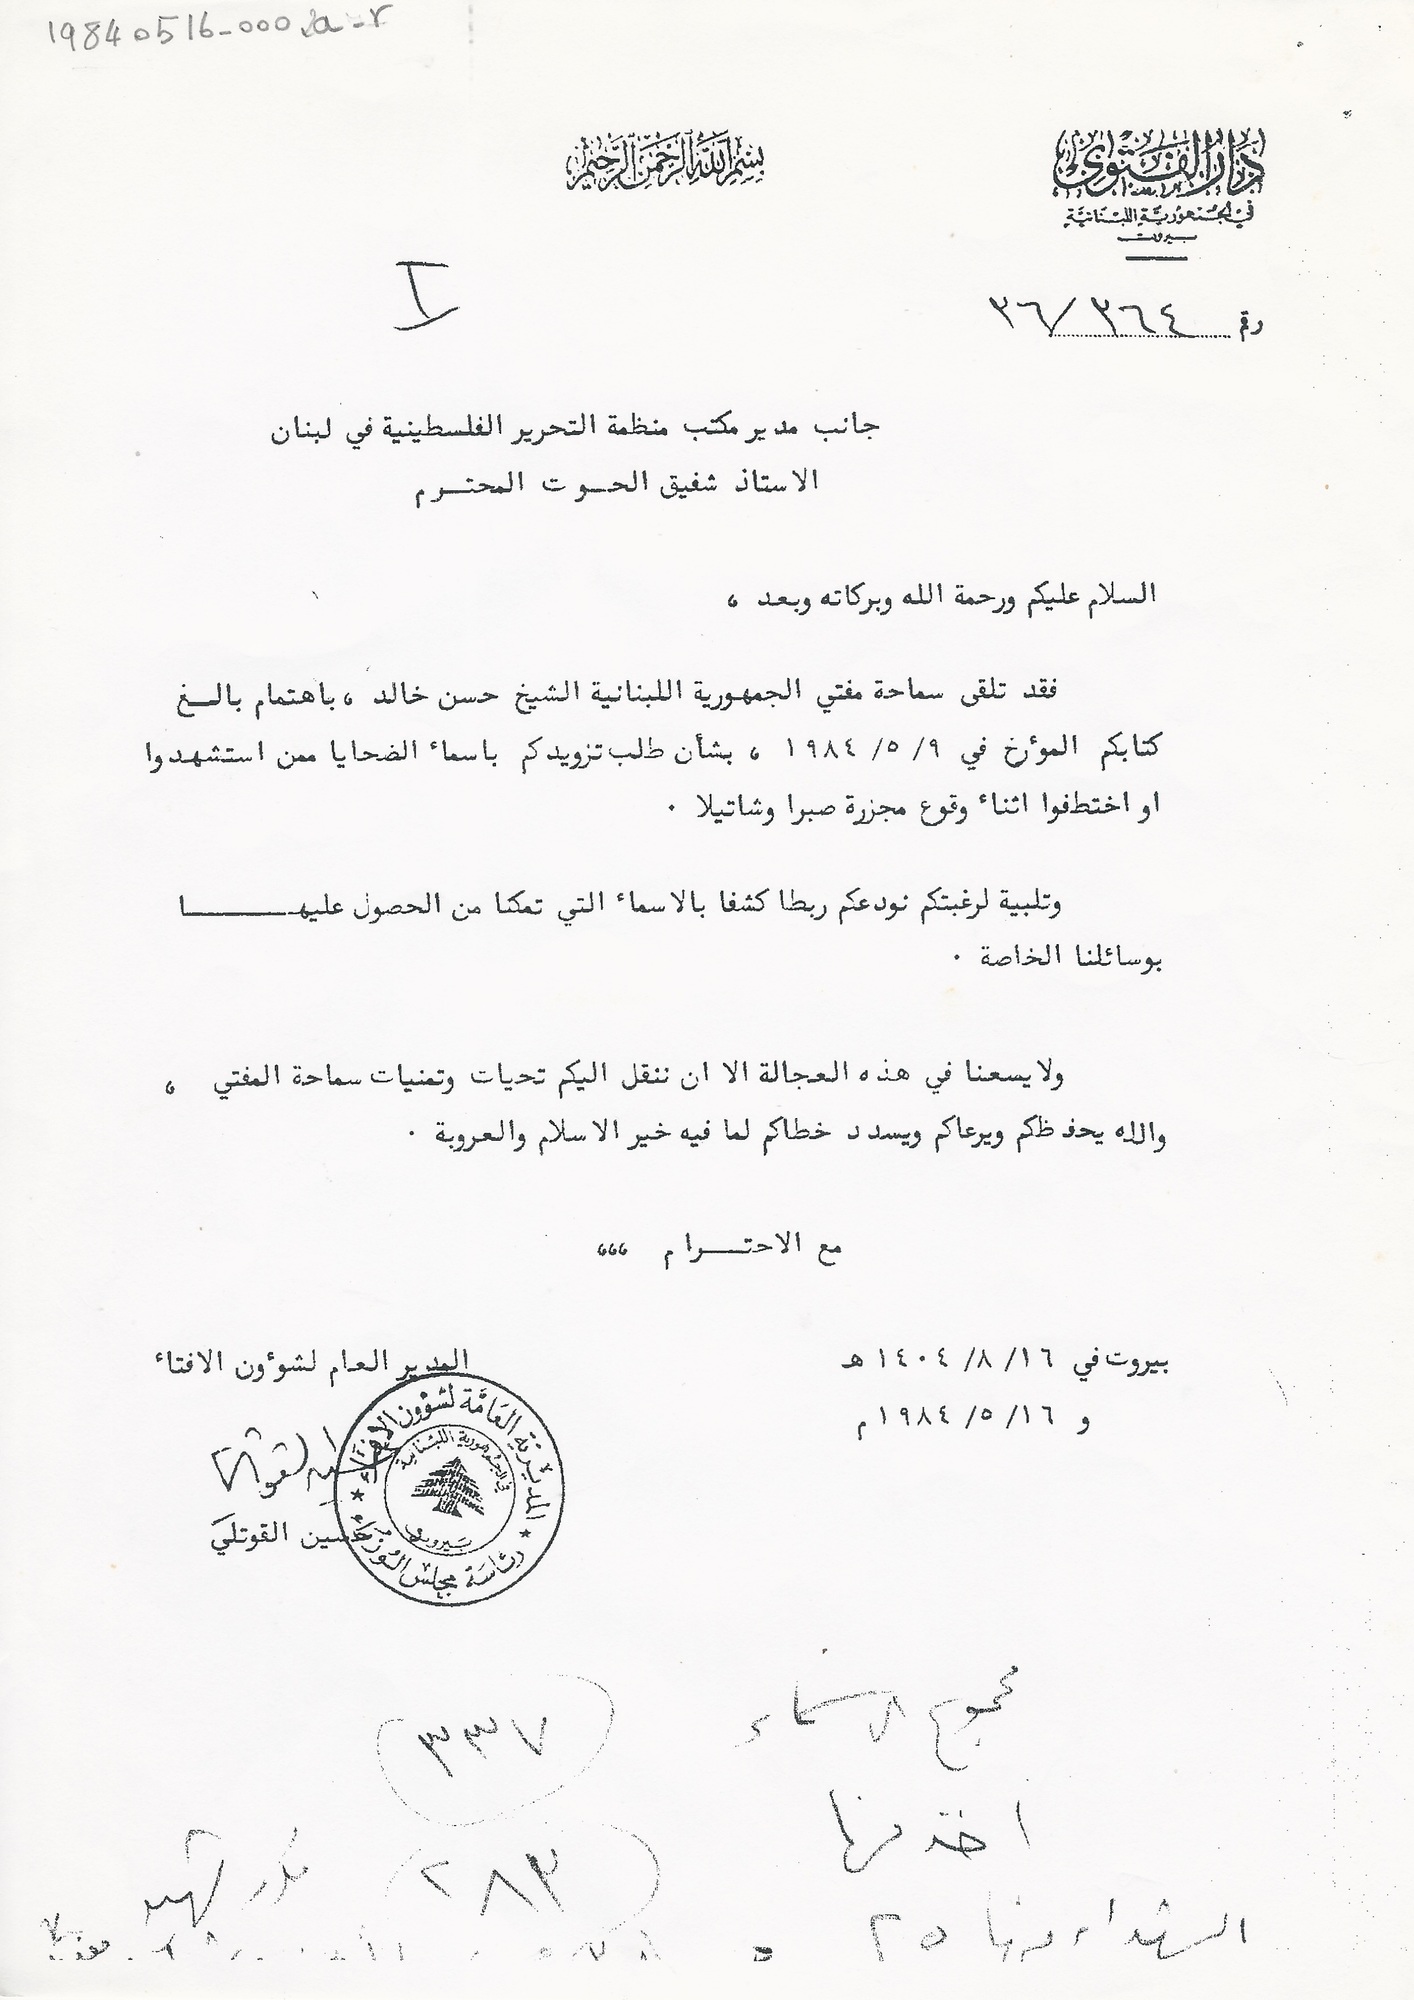 19840516-000
بسم الله الرحمن الرحيم
دار الفتوى
في الجمهورية اللبنانية
بيروت
رقم ٣٦/٣٦٤
I
جانب مدير مكتب منظمة التحرير الفلسطينية في لبنان
الاستاذ شفيق الحوت المحترم
السلام عليكم ورحمة الله وبركاته وبعد ،
فقد تلقى سماحة مفتي الجمهورية اللبنانية الشيخ حسن خالد ، باهتمام بالغ
كتابكم المؤرخ في ٩/ ٥/ ١٩٨٤ ، بشأن طلب تزويدكم باسماء الضحايا ممن استشهدوا
او اختطفوا اثناء وقوع مجزرة صبرا وشاتيلا .
وتلبية لرغبتكم نودعكم ربطا كشفا بالاسماء التي تمكنا من الحصول عليها
بوسائلنا الخاصة .
ولا يسعنا في هذه العجالة الا ان ننقل اليكم تحيات وتمنيات سماحة المفتي ،
والله يحفظكم ويرعاكم ويسدد خطاكم لما فيه خير الاسلام والعروبة .
مع الاحترام ،،،
بيروت في ١٦/ ٨/ ١٤٠٤ هـ
و ١٦/ ٥/ ١٩٨٤ م
المدير العام لشوءون الافتاء
حسين القوتلي
المديرية العامة لشؤون الافتاء
في الجمهورية اللبنانية
بيروت
رئاسة مجلس الوزراء
مجموع الاسماء ٣٣٧
اخذ منها ٢٨٣ مكرر
الشهداء منها ٢٥